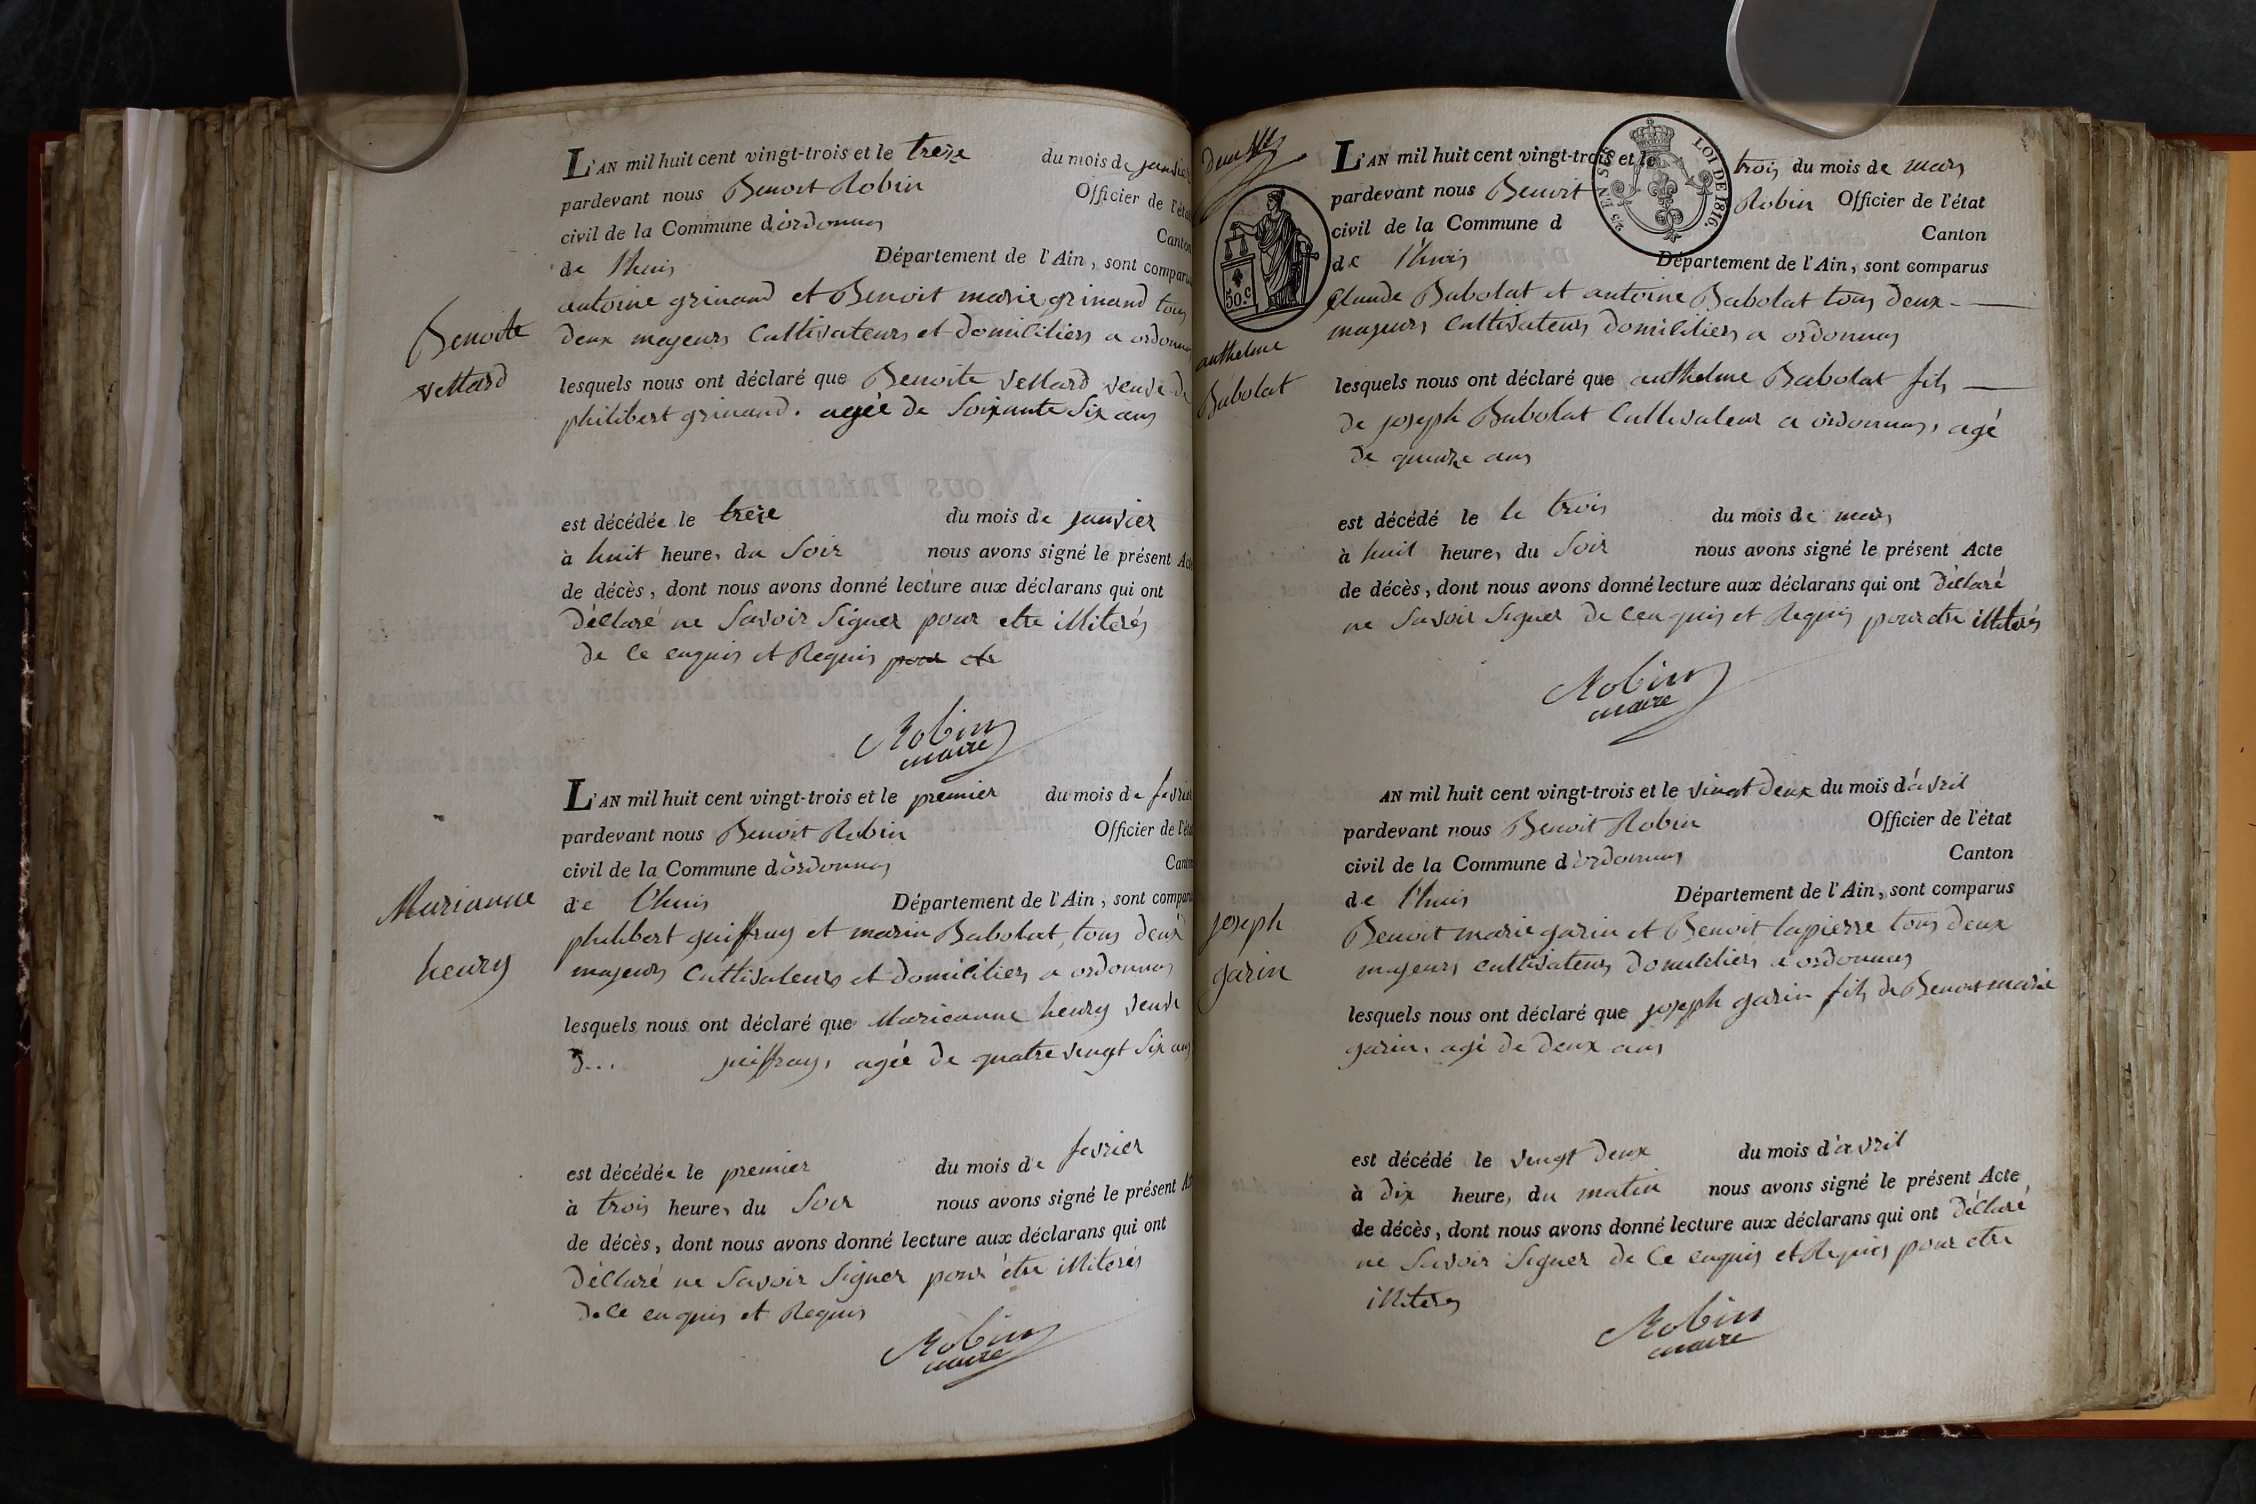 L'AN mil huit cent vingt-trois et le treize du mois de janvier
pardevant nous Benoit Robin Officier de l'état
civil de la Commune d'ordonnas Canton
de l'huis Département de l'Ain, sont comparus
antoine grinand et Benoit marie grinand tous
deux majeurs Cultivateurs et domiciliés a ordonnas
Benoite
vettard
lesquels nous ont déclaré que Benoite vettard veuve de
philibert grinand. agée de Soixante Six ans
est décédée le treize du mois de janvier
à huit heures du Soir nous avons signé le présent Acte
de décès, dont nous avons donné lecture aux déclarans qui ont
déclaré ne Savoir Signer pour etre illiterés
de Ce enquis et Requis pour etr
Robin
maire
L'AN mil huit cent vingt-trois et le premier du mois de fevrier
pardevant nous Benoit Robin Officier de l'état
civil de la Commune d'ordonnas Canton
Marianne
henry
de l'huis Département de l'Ain, sont comparus
philibert guiffray et marin Babolat, tous deux
majeurs Cultivateurs et domiciliés a ordonnas
lesquels nous ont déclaré que Marieanne henry veuve
d... guiffray, agée de quatre vingt Six ans
est décédée le premier du mois de fevrier
à trois heures du Soir nous avons signé le présent Acte
de décès, dont nous avons donné lecture aux déclarans qui ont
déclaré ne Savoir Signer pour être illiterés
de Ce enquis et Requis
Robin
maire
L'AN mil huit cent vingt-trois et le trois du mois de mars
pardevant nous Benoit Robin Officier de l'état
civil de la Commune d Canton
de l'huis Département de l'Ain, sont comparus
25 EN SUS
LOI DE 1816.
50.C
Claude Babolat et antoine Babolat tous deux
majeurs Cultivateurs domiciliés a ordonnas
anthelme
Babolat
lesquels nous ont déclaré que anthelme Babolat fils
de joseph Babolat Cultivateur a ordonnas, agé
de quinze ans
est décédé le le trois du mois de mars
à huit heures du Soir nous avons signé le présent Acte
de décès, dont nous avons donné lecture aux déclarans qui ont déclaré
ne Savoir Signer de Ce enquis et Requis pour etre illiterés
Robin
maire
AN mil huit cent vingt-trois et le vingt deux du mois d'avril
pardevant nous Benoit Robin Officier de l'état
civil de la Commune d'ordonnas Canton
de l'huis Département de l'Ain, sont comparus
joseph
garin
Benoit marie garin et Benoit lapierre tous deux
majeurs cultivateurs domiciliés a ordonnas
lesquels nous ont déclaré que joseph garin fils de Benoit marie
garin, agé de deux ans
est décédé le vingt deux du mois d'avril
à dix heures du matin nous avons signé le présent Acte
de décès, dont nous avons donné lecture aux déclarans qui ont déclaré
ne Savoir Signer de Ce enquis et Requis pour etre
illiterés
Robin
maire